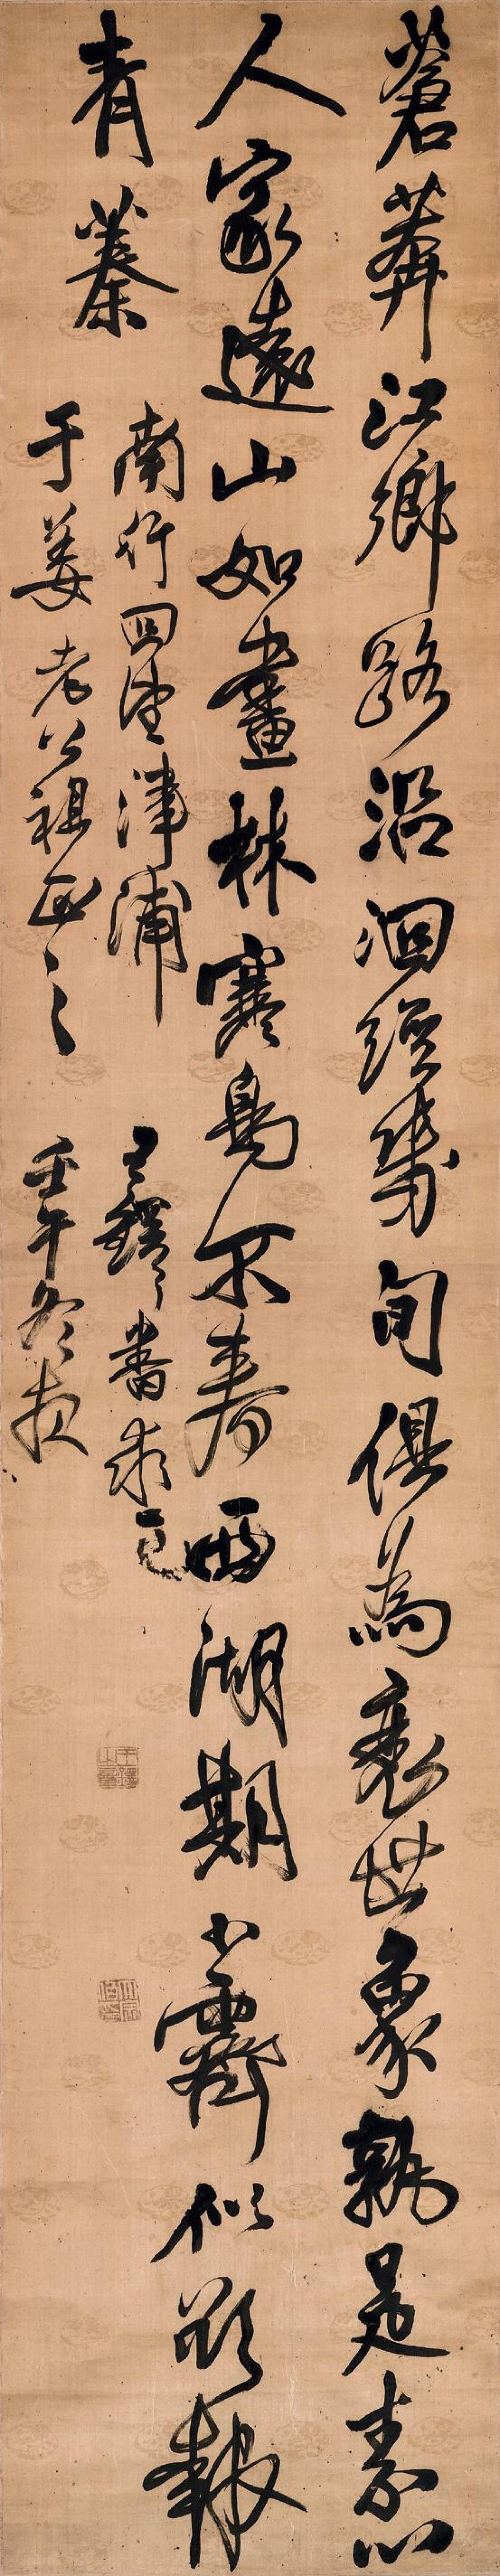 蒼莽江鄉路沿洄經幾旬俱為衰世象孰是素心
人家遠山如畫林寒鳥不春西湖期小霽似欲報
青蓁
南行回望津浦
于姜老公祖正之
王鐸書求
壬午冬夜